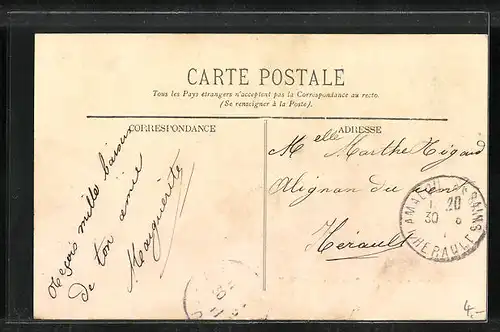 CARTE POSTALE
Tous les Pays étrangers n'acceptent pas la Correspondance au recto.
(Se renseigner à la Poste).
CORRESPONDANCE
ADRESSE
Reçois mille baisers
de ton amie
Marguerite
Melle Marthe Rigaud
Alignan du vent
Hérault
AMALOU BAINS
20
30 8
HERAULT
4.-